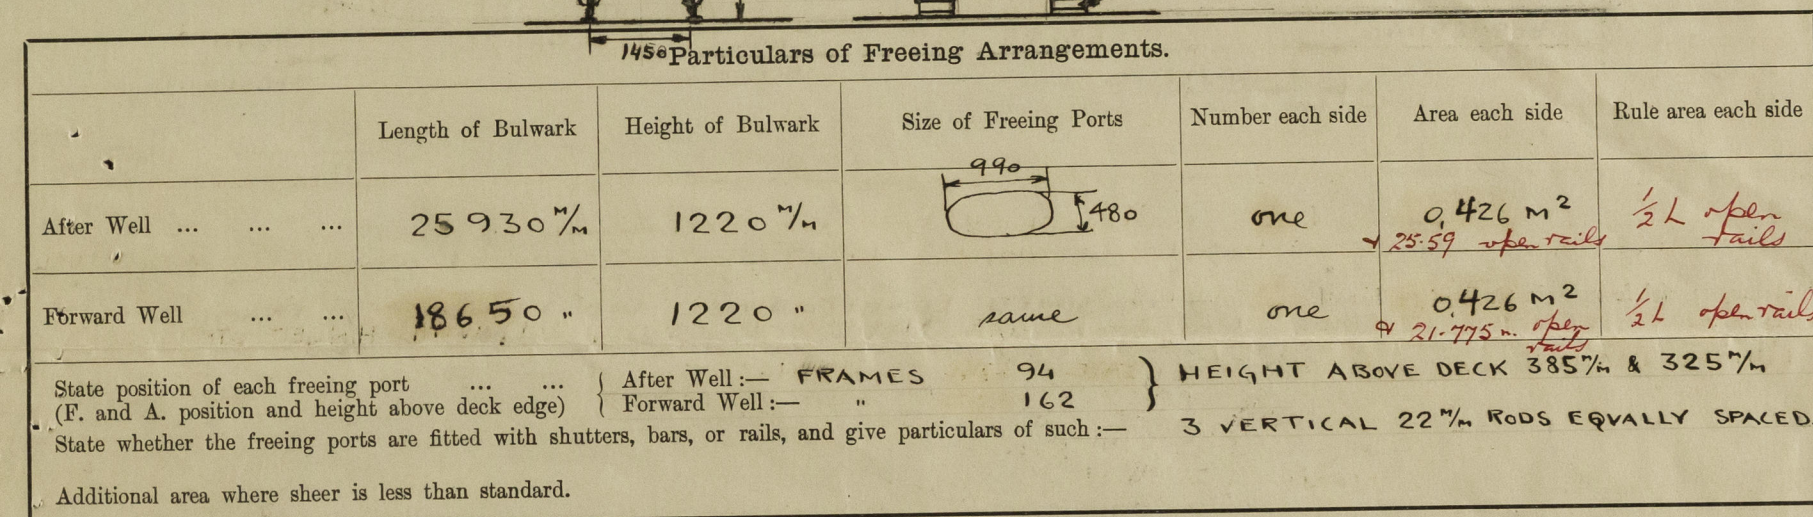 1450
Particulars of Freeing Arrangements.
Length of Bulwark Height of Bulwark Size of Freeing Ports Number each side Area each side Rule area each side
990
After Well ... ... ... 25930 M/M 1220 M/M 480 one 0,426 M² ½ L open
+ 25.59 open rails rails
Forward Well ... ... 18650 " 1220 " same one 0,426 M² ½ L open rails
& 21.775 m. open
rails
State position of each freeing port ... ... { After Well :— FRAMES 94 } HEIGHT ABOVE DECK 385 M/M & 325 M/M
(F. and A. position and height above deck edge) { Forward Well :— " 162
State whether the freeing ports are fitted with shutters, bars, or rails, and give particulars of such :— 3 VERTICAL 22 M/M RODS EQVALLY SPACED.
Additional area where sheer is less than standard.